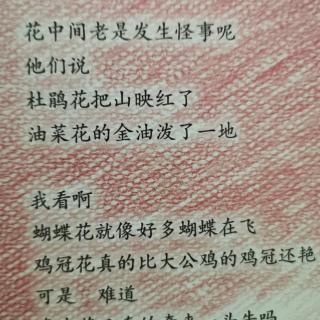 花中间老是发生怪事呢
他们说
杜鹃花把山映红了
油菜花的金油泼了一地
我看啊
蝴蝶花就像好多蝴蝶在飞
鸡冠花真的比大公鸡的鸡冠还艳
可是 难道